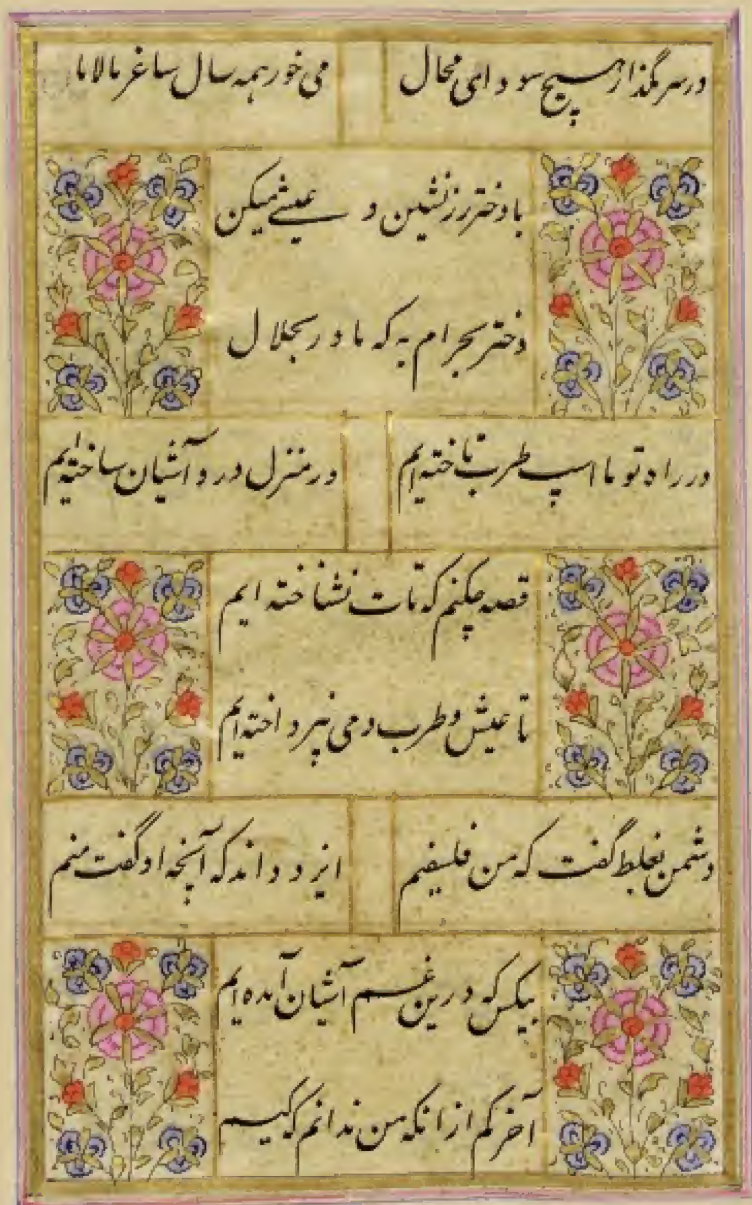 در سر مگذار هیچ سودای محال می خور همه سال ساغر مالامال
با دختر رز نشین و عیشی میکن
دختر بحرام به که مادر بحلال
در راه تو ما اسپ طرب تاخته ایم در منزل درد آشیان ساخته ایم
قصه چکنم که تات نشناخته ایم
تا عیش و طرب دمی نپرداخته ایم
دشمن بغلط گفت که من فلسفیم ایزد داند که آنچه او گفت منم
بیکس که درین غم آشیان آمده ایم
آخر کم از انکه من ندانم که کیم